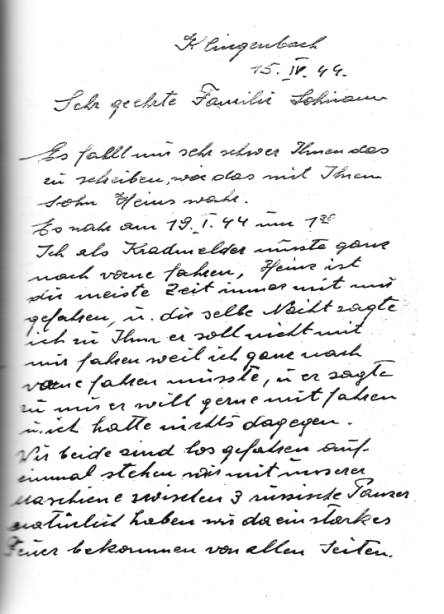 Klingenbach
15. IV. 44.
Sehr geehrte Familie
Es fallt mir sehr schwer Ihnen das
zu schreiben, wie das mit Ihrem
Sohn Heins wahr.
Es wahr am 19. I. 44 um 1
Ich als Kradmelder müsste ganz
nach vorne fahren, Heinz ist
die meiste Zeit immer mit mir
gefahren, u. die selbe Nacht sagte
ich zu Ihm er soll nicht mit
mir fahren weil ich ganz nach
vorne fahren müsste, u er sagte
zu mir er will gerne mit fahren
u. ich hatte nichts dagegen.
Wir beide sind los gefahren auf-
einmal stehen wir mit unserer
Maschiene zwischen 3 russische Panzer
natürlich haben wir da ein starkes
Feuer bekommen von allen Seiten.